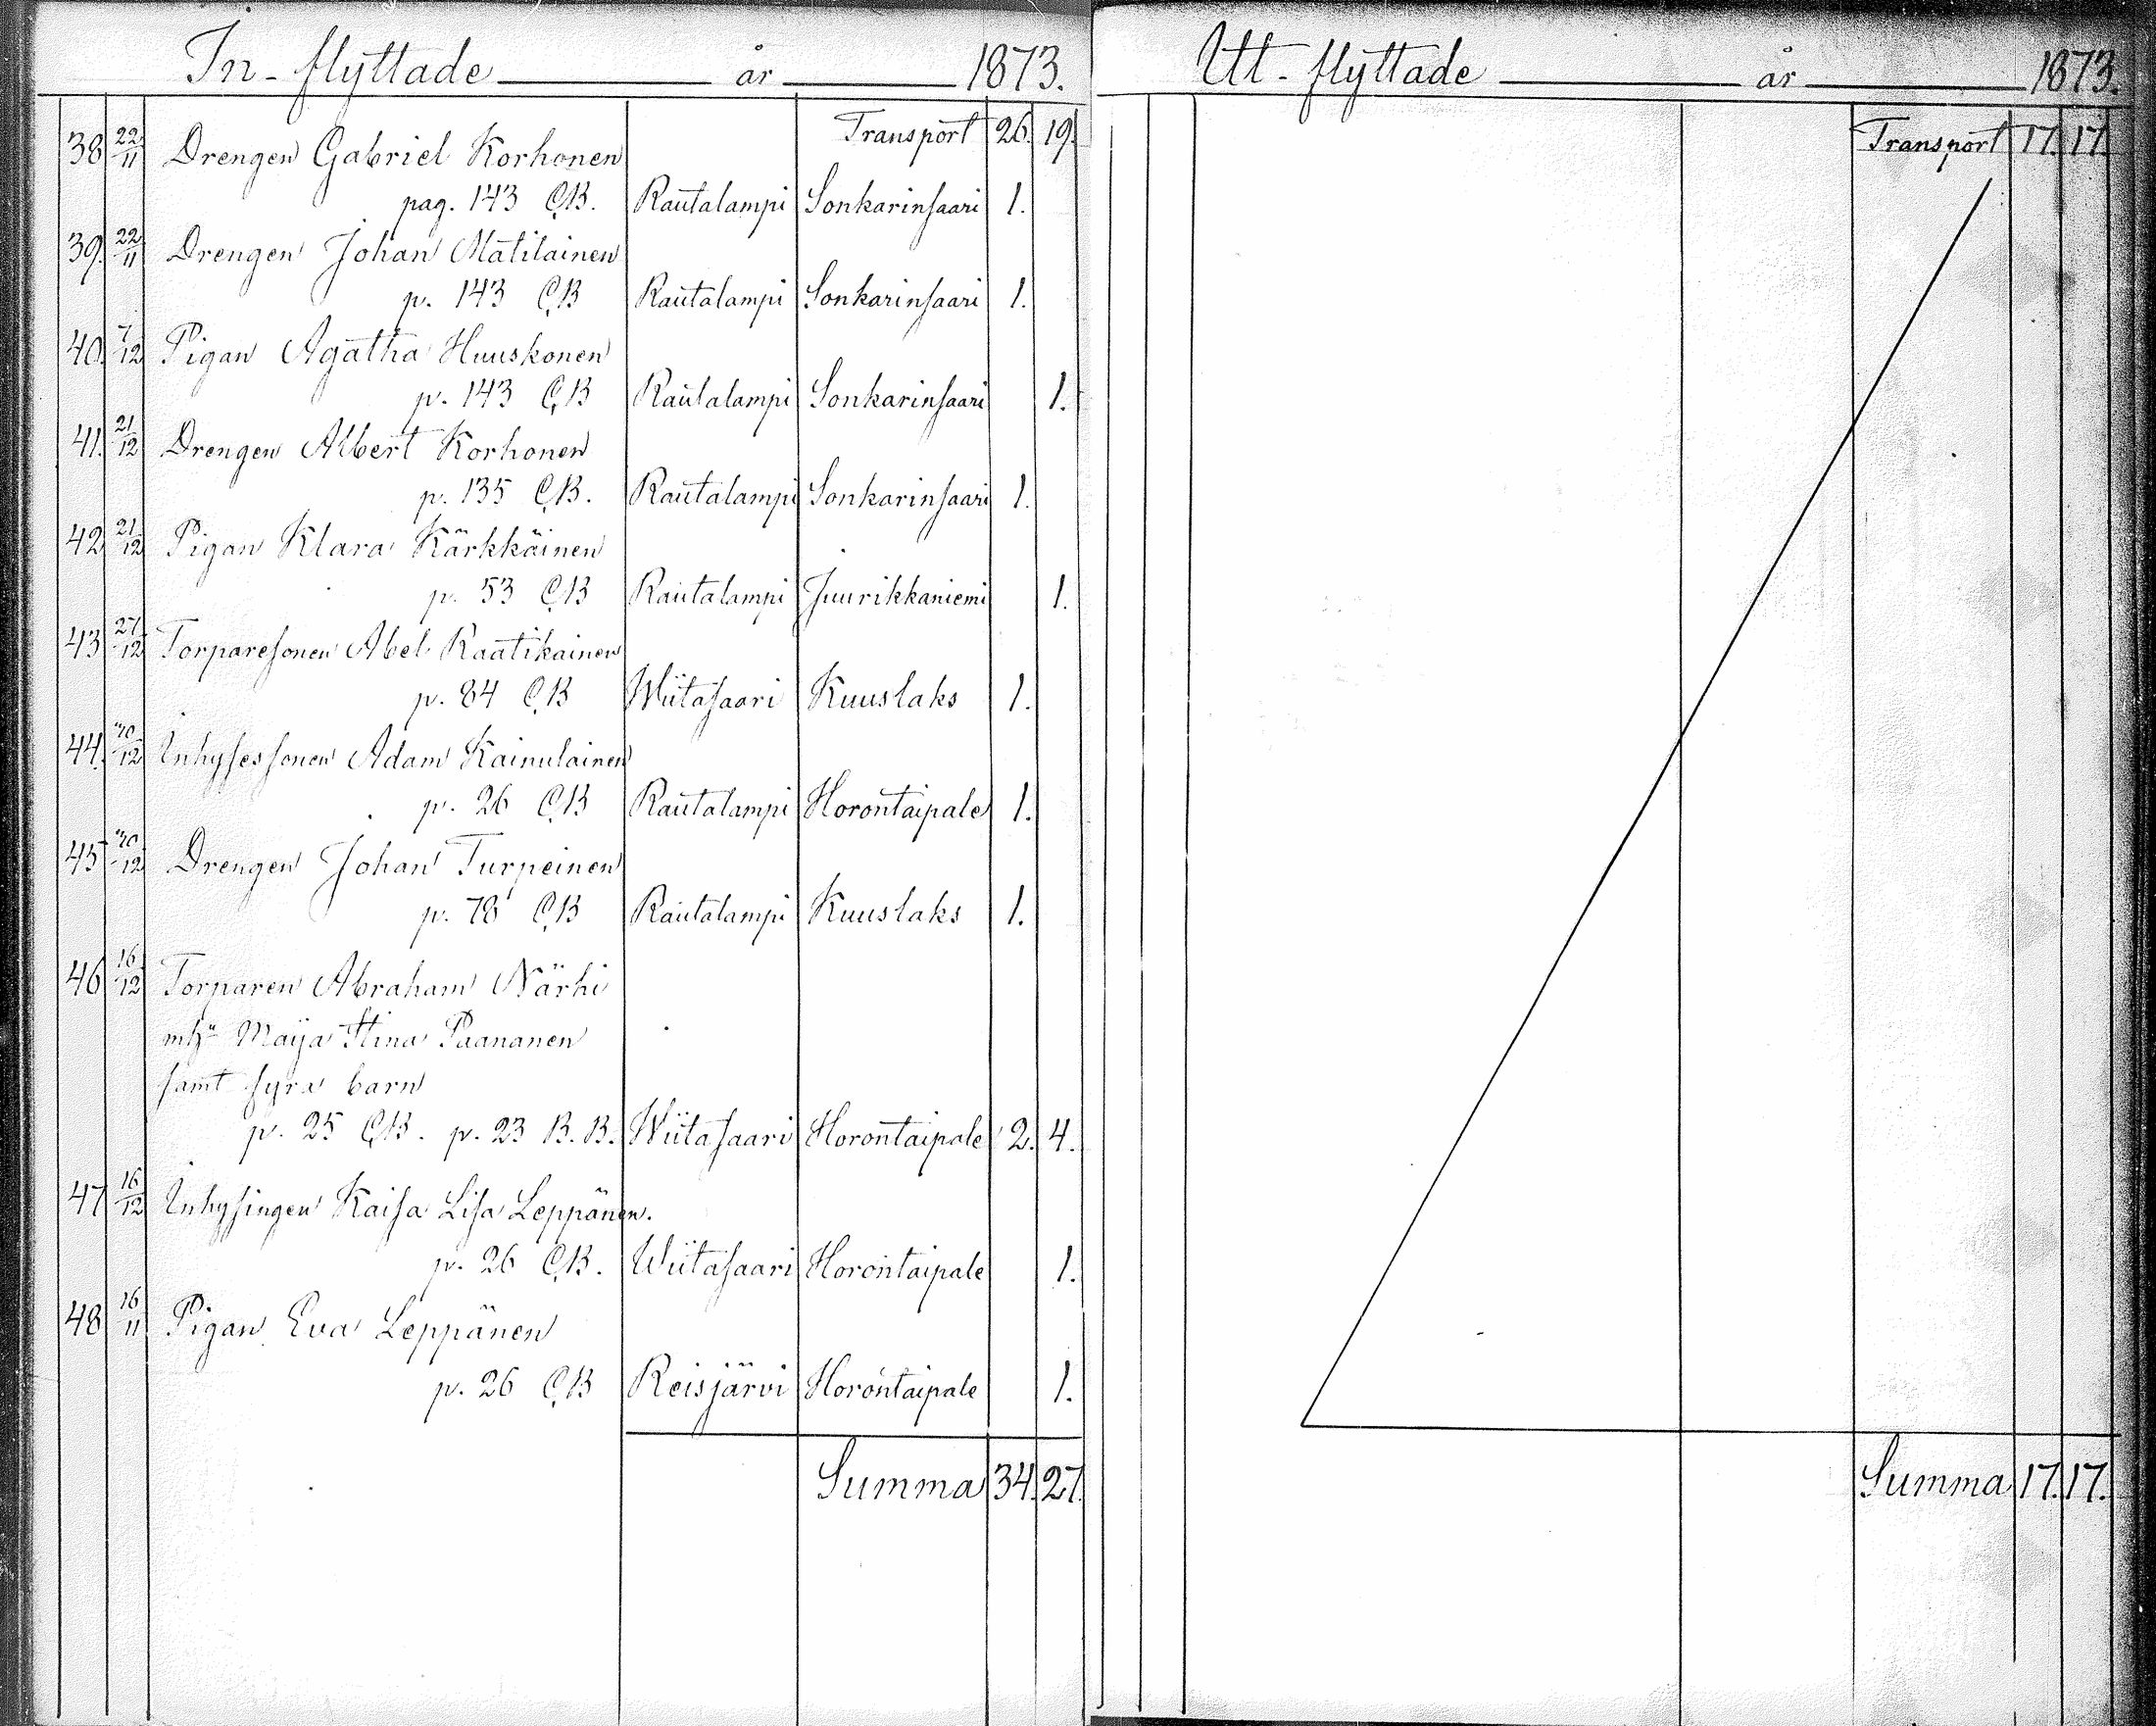 In-flyttade år 1873.
Transport 26. 19.
38 22/11 Drengen Gabriel Korhonen
pag. 143 C,B. Rautalampi Sonkarinsaari 1.
39. 22/11 Drengen Johan Matilainen
p. 143 C,B Rautalampi Sonkarinsaari 1.
40. 7/12 Pigan Agatha Huuskonen
p. 143 C,B Rautalampi Sonkarinsaari 1.
41. 21/12 Drengen Albert Korhonen
p. 135 C,B. Rautalampi Sonkarinsaari 1.
42 21/12 Pigan Klara Kärkkäinen
p. 53 C,B Rautalampi Juurikkaniemi 1.
43 27/12 Torparesonen Abel Raatikainen
p. 84 C,B Wiitasaari Kuuslaks 1.
44. 30/12 Inhysessonen Adam Kainulainen
p. 26 C,B Rautalampi Horontaipale 1.
45 30/12 Drengen Johan Turpeinen
p. 78 C,B Rautalampi Kuuslaks 1.
46 16/12 Torparen Abraham Närhi
Maija Stina Paananen
samt fyra barn
p. 25 C,B. p. 23 B.B. Wiitasaari Horontaipale 2. 4.
47 16/12 Inhysingen Kaisa Lisa Leppänen.
p. 26 C,B. Wiitasaari Horontaipale 1.
48 16/11 Pigan Eva Leppänen
p. 26 C,B Reisjärvi Horontaipale 1.
Summa 34. 27.
Ut-flyttade år 1873.
Transport 17. 17.
Summa 17. 17.